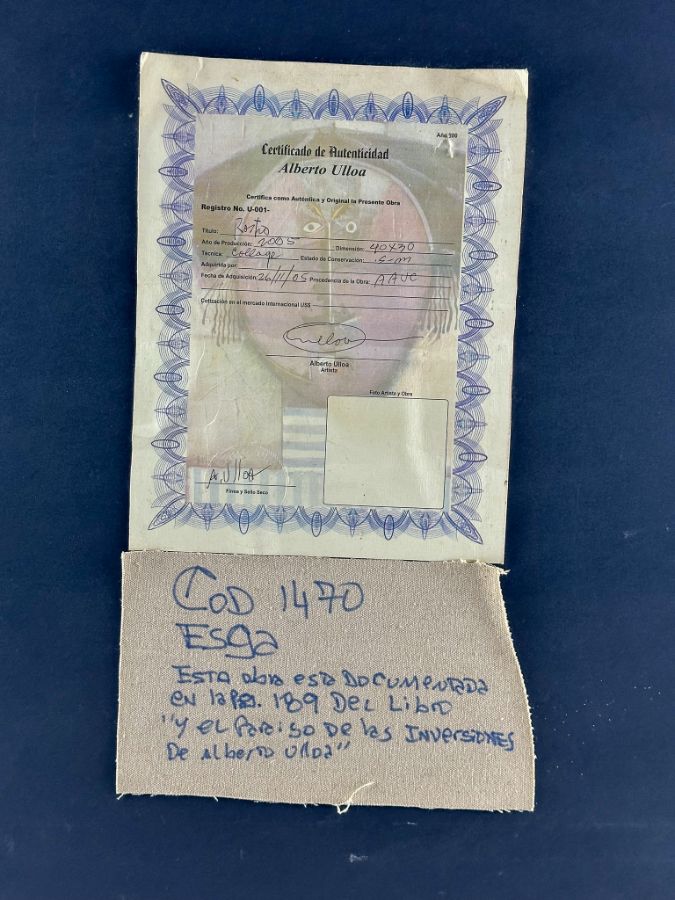 Año 200
Certificado de Autenticidad
Alberto Ulloa
Certifica como Auténtica y Original la Presente Obra
Registro No. U-001-
Título: Rostro
Año de Producción: 2005 Dimensión: 40x30
Técnica: Collage Estado de Conservación:
Adquirida por
Fecha de Adquisición 26/11/05 Procedencia de la Obra: AAUC
Cotización en el mercado Internacional US$
Alberto Ulloa
Artista
Foto Artista y Obra
Ulloa
Firma y Sello Seco
COD 1470
ESGA
ESTA obra esta DOCUMENTADA
EN la Pa. 189 Del Libro
"y el Paraiso De las INVERSIONES
De Alberto Ulloa"